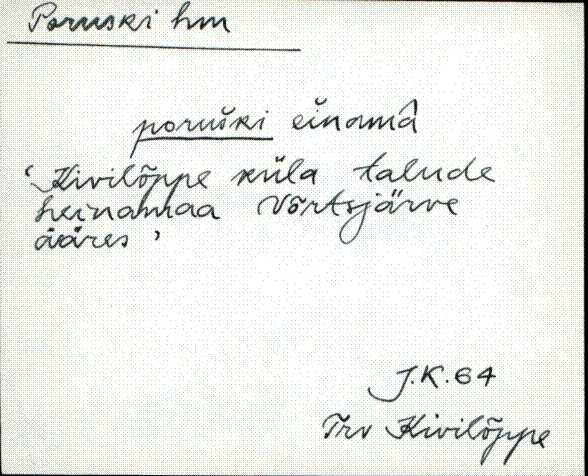 Poruski hm
poruški einamā̂
‘Kivilõppe küla talude
heinamaa Võrtsjärve
ääres’
J.K.64
Trv Kivilõppe